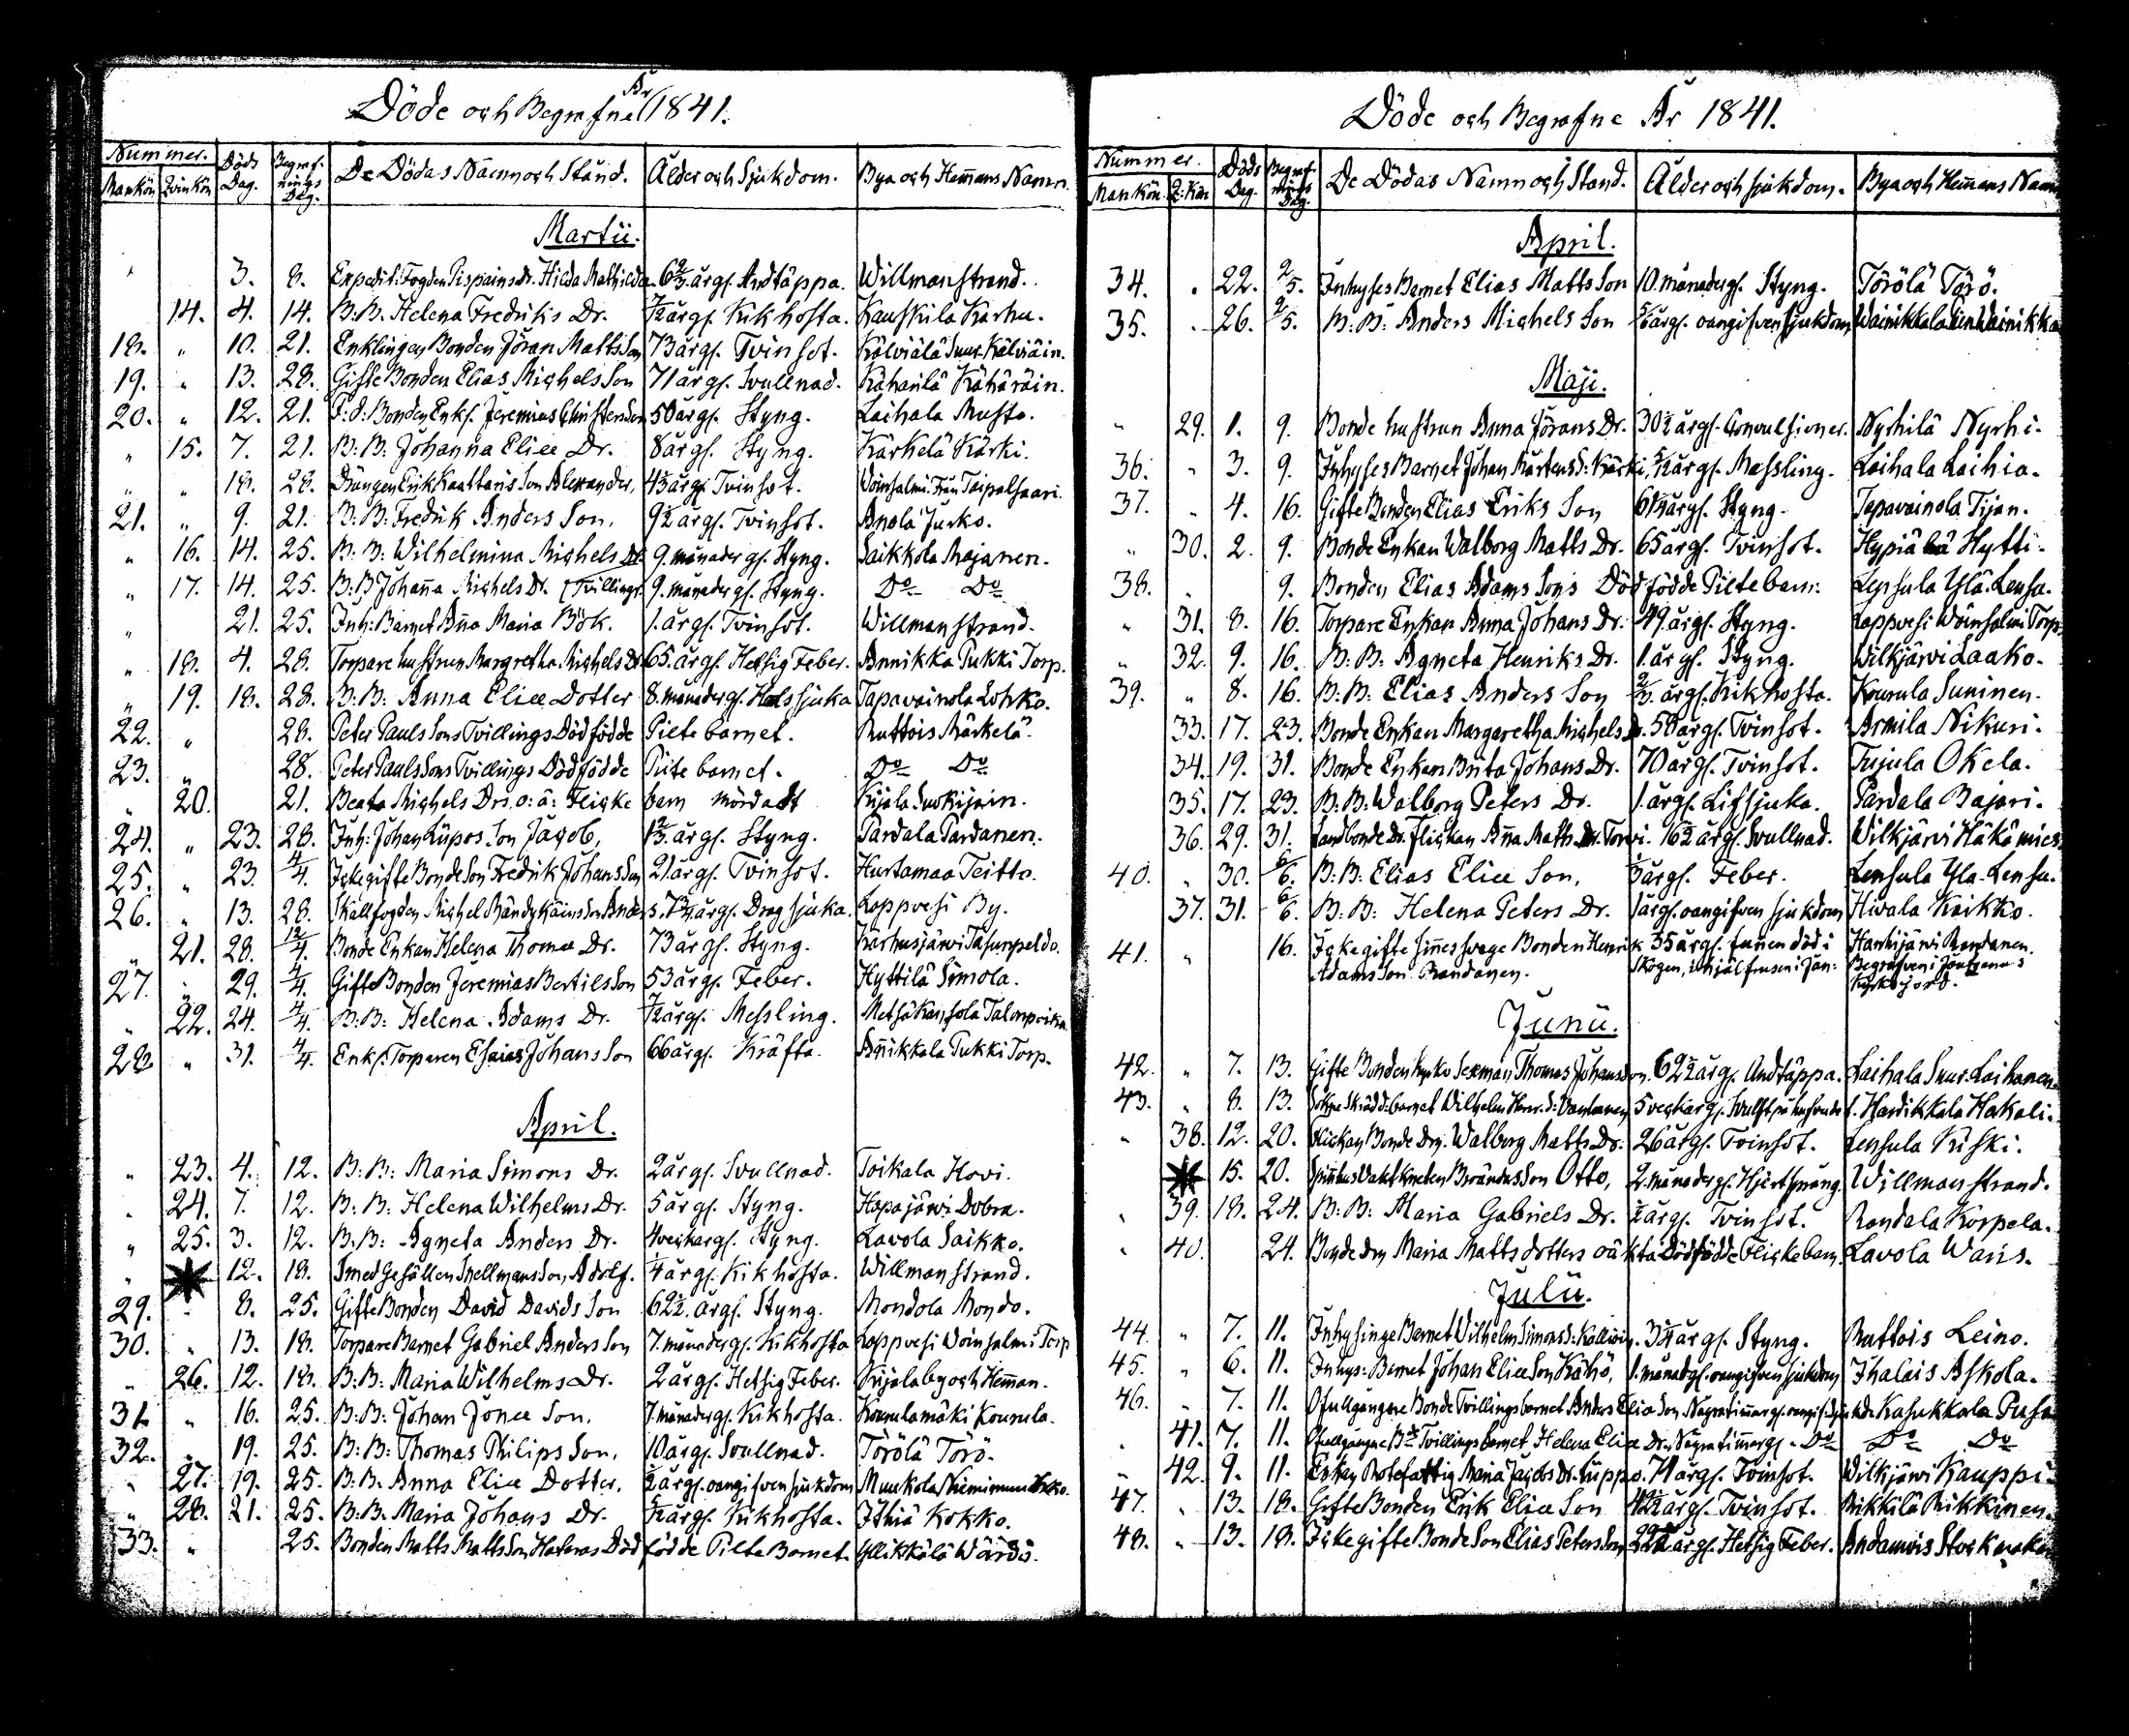 Döde och Begrafne År 1841.
Nummer. Döds Dag. Begrafnings Dag. De Dödas Namn och Stånd. Ålder och Sjukdom. Bya och Hemans Namn.
Mankön Qvinkön
Martii.
3. 8. Expedit: Fogden Pispains dr. Hilda Mathilda 6 2/3 årgl. Andtäppa. Willmanstrand.
14. 4. 14. B. B. Helena Fredriks Dr. 7/12 årgl. Kikhosta. Kauskila Karhu.
18. " 10. 21. Enklingen Bonden Jöran Matts Son 73 årgl. Tvinsot. Kälviälä Suur Kälviäin.
19. " 13. 28. Gifte Bonden Elias Michels Son 71 årgl. Svullnad. Kähärilä Kähäräin.
20. " 12. 21. F: d: Bonden Enkl. Jeremias Christers Son 50 årgl. Styng. Laihala Musto.
" 15. 7. 21. B: B: Johanna Eliæ Dr. 8 årgl. Styng. Kärkelä Kärki.
" " 18. 28. Drängen Erik Kaattaris Son Alexander, 4 1/2 årgl. Tvinsot. Woinsalmi från Taipalsaari.
21. " 9. 21. B: B: Fredrik Anders Son. 9 1/2 årgl. Tvinsot. Anola Jurko.
" 16. 14. 25. B: B: Wilhelmina Michels Dr. 9. månader gl. Styng. Saikkola Majanen.
" 17. 14. 25. B: B Johanna Michels Dr. (Tvillingr. 9. månader gl. Styng. Do Do
" 21. 25. Inh: Barnet Anna Maria Bök. 1. årgl. Tvinsot. Willmanstrand.
" 18. 4. 28. Torpare hustrun Margretha Michels Dr. 65. årgl. Hetsig Feber. Annikka Pukki Torp.
" 19. 18. 28. B: B: Anna Eliæ Dotter 8. månader gl. Halssjuka Tapavainola Lohko.
22. " 28. Peter Pauls Sons Tvillings Dödfödde Pilte barnet. Ruttois Märkelä.
23. " 28. Peter Pauls Sons Tvillings Dödfödde Pilte barnet. Do Do
" 20. 21. Beata Michels Drs. o: ä: Flicke barn mördadt Kijala Suokijain.
24. " 23. 28. Inh: Johan Son Jacob, 1 2/3 årgl. Styng. Pardala Pardanen.
25. " 23. 4/4. Icke gifte Bonde Son Fredrik Johans Son 21 årgl. Tvinsot. Hurtamaa Teitto.
26. " 13. 28. Skallfogden Michel Son Anders. 7 3/4 årgl. Dragsjuka. Lappvesi By.
" 21. 28. 12/4. Bonde Enkan Helena Thomæ Dr. 73 årgl. Styng. Karhusjärvi
27. " 29. 4/4. Gifte Bonden Jeremias Bertils Son 53 årgl. Feber. Hyttilä Simola.
" 22. 24. 4/4. B: B: Helena Adams Dr. 7/12 årgl. Messling. Metsäkansola Talonpoika
28. " 31. 4/4. Enkl. Torparen Esaias Johans Son 66 årgl. Kräfta. Annikkala Pukki Torp.
April.
" 23. 4. 12. B: B: Maria Simons Dr. 2 årgl. Svullnad. Toikala Hovi.
" 24. 7. 12. B: B: Helena Wilhelms Dr. 5 årgl. Styng. Hapajärvi Dobra.
" 25. 3. 12. B: B: Agneta Anders Dr. 4 veckargl. Styng. Lavola Saikko.
" 12. 18. Smed Gesällen Snellmans Son, Adolf. 1/4 årgl. Kikhosta. Willmanstrand.
29. " 8. 25. Gifte Bonden David Davids Son 62 1/2. årgl. Styng. Mondola Mondo.
30. " 13. 18. Torpare Barnet Gabriel Anders Son 7. månader gl. Kikhosta Lappvesi Woinsalmi Torp
" 26. 12. 18. B: B: Maria Wilhelms Dr. 2 årgl. Hetsig Feber. Kijala by och Hemman.
31. " 16. 25. B: B: Johan Jonæ Son. 7. månader gl. Kikhosta. Kourulamäki Kourula.
32. " 19. 25. B: B: Thomas Philips Son. 10 årgl. Svullnad. Törölä Törö.
" 27. 19. 25. B: B: Anna Eliæ Dotter. 1/2 årgl. oangifven sjukdom Muukola
" 28. 21. 25. B: B. Maria Johans Dr. 5/12 årgl. Kikhosta. Ithiä Kokko.
33. " 25. Bonden Matts Matts Son Dödfödde Pilte Barnet. Yllikkälä
Döde och Begrafne År 1841.
Nummer. Döds Dag. Begrafnings Dag. De Dödas Namn och Stånd. Ålder och sjukdom. Bya och Hemans Namn
Mankön. Q: Kön
April.
34. " 22. 2/5. Inhyses Barnet Elias Matts Son 10. månadergl. Styng. Törölä Törö.
35. " 26. 2/5. B: B: Anders Michels Son 5/6 årgl. oangifven sjukdom Wainikkala
Maji.
" 29. 1. 9. Bonde hustrun Anna Jörans Dr. 30 1/2 årgl. Convulsioner. Nyrhilä Nyrhi.
36. " 3. 9. Inhyses Barnet Johan Mårtens S: Kärki, 5/12 årgl. Messling. Laihala Laihia.
37. " 4. 16. Gifte Bonden Elias Eriks Son 61 1/4 årgl. Styng. Tapavainola Tijan.
" 30. 2. 9. Bonde Enkan Walborg Matts Dr. 65 årgl. Tvinsot. Hytti.
38. " 9. Bonden Elias Adams Sons Dödfödde Piltebarn: Lensula Ylä-Lensu.
" 31. 8. 16. Torpare Enkan Anna Johans Dr. 49. årgl. Styng. Lappvesi Woinsalmi Torp.
" 32. 9. 16. B: B: Agneta Henriks Dr. 1. årgl. Styng. Wilkjärvi Laako.
39. " 8. 16. B: B: Elias Anders Son 2/3 årgl. Kikhosta. Kourula Suninen.
33. 17. 23. Bonde Enkan Margaretha Michels Dr. 50 årgl. Tvinsot. Armila Nikuri.
34. 19. 31. Bonde Enkan Brita Johans Dr. 70 årgl. Tvinsot. Tujula Okela.
35. 17. 23. B: B: Walborg Peters Dr. 1. årgl. Lifsjuka. Pardala Bajari.
36. 29. 31. Landbonde Dr. Flickan Anna Matts Dr. Torvi. 16 1/2 årgl. Svullnad. Wilkjärvi Häkämies.
40. " 30. 6/6. B: B: Elias Eliæ Son. 1/3 årgl. Feber. Lensula Ylä-Lensu.
37. 31. 6/6. B: B: Helena Peters Dr. 1 årgl. oangifven sjukdom Hivala Kaikko.
41. " 16. Icke gifte sinnessvage Bonden Henrik 35 årgl. funnen död i Hanhijärvi Randanen.
Adams Son Randanen. Skogen, ihjälfrusen i Jan: Begrafven i Joutsenos
Kyrkojord.
Junii.
42. " 7. 13. Gifte Bonden Kyrko Sexman Thomas Johans Son. 62 1/2 årgl. Andtäppa. Laihala Suur-Laihanen.
43. " 8. 13. Sokne Skrädd: barnet Wilhelm Henr. S: 5 veckargl. Svulst på hufvudet. Hardikkala Hakali.
" 38. 12. 20. Flickan Bonde Dr. Walborg Matts Dr. 26 årgl. Tvinsot. Lensula Kiski.
15. 20. Spinnhus Vaktknekten Brandts Son Otto, 2. månader gl. Hjertsprång. Willmanstrand.
" 39. 18. 24. B: B: Maria Gabriels Dr. 1/2 årgl. Tvinsot. Randala Korpela.
" 40. 24. Bonde Drn Maria Mattsdotters oäkta dödfödde Flickebarn. Lavola Waris.
Julii.
44. " 7. 11. Inhysinge Barnet Wilhelm Simons S: 3 3/4 årgl. Styng. Ruttois Leino.
45. " 6. 11. Inhys: Barnet Johan Eliæ Son Kähö, 1. månad gl. oangifven sjukdom Ihalais Askola.
46. " 7. 11. Ofullgångne Bonde Tvillingsbarnet Anders Eliæ Son. Några timmar gl. oangif: sjukd. Kasukkala Pusa
" 41. 7. 11. Ofullgångne Bde Tvillingsbarnet Helena Eliæ Dr. Några timmar gl. Do Do Do
" 42. 9. 11. Enkan Rotefattig Maria Jacobs Dr. 71 årgl. Tvinsot. Wilkjärvi Kauppi.
47. " 13. 18. Gifte Bonden Erik Eliæ Son 42 1/2 årgl. Tvinsot. Mikkilä Mikkinen.
48. " 13. 18. Icke gifte Bonde Son Elias Peters Son årgl. Hetsig Feber.